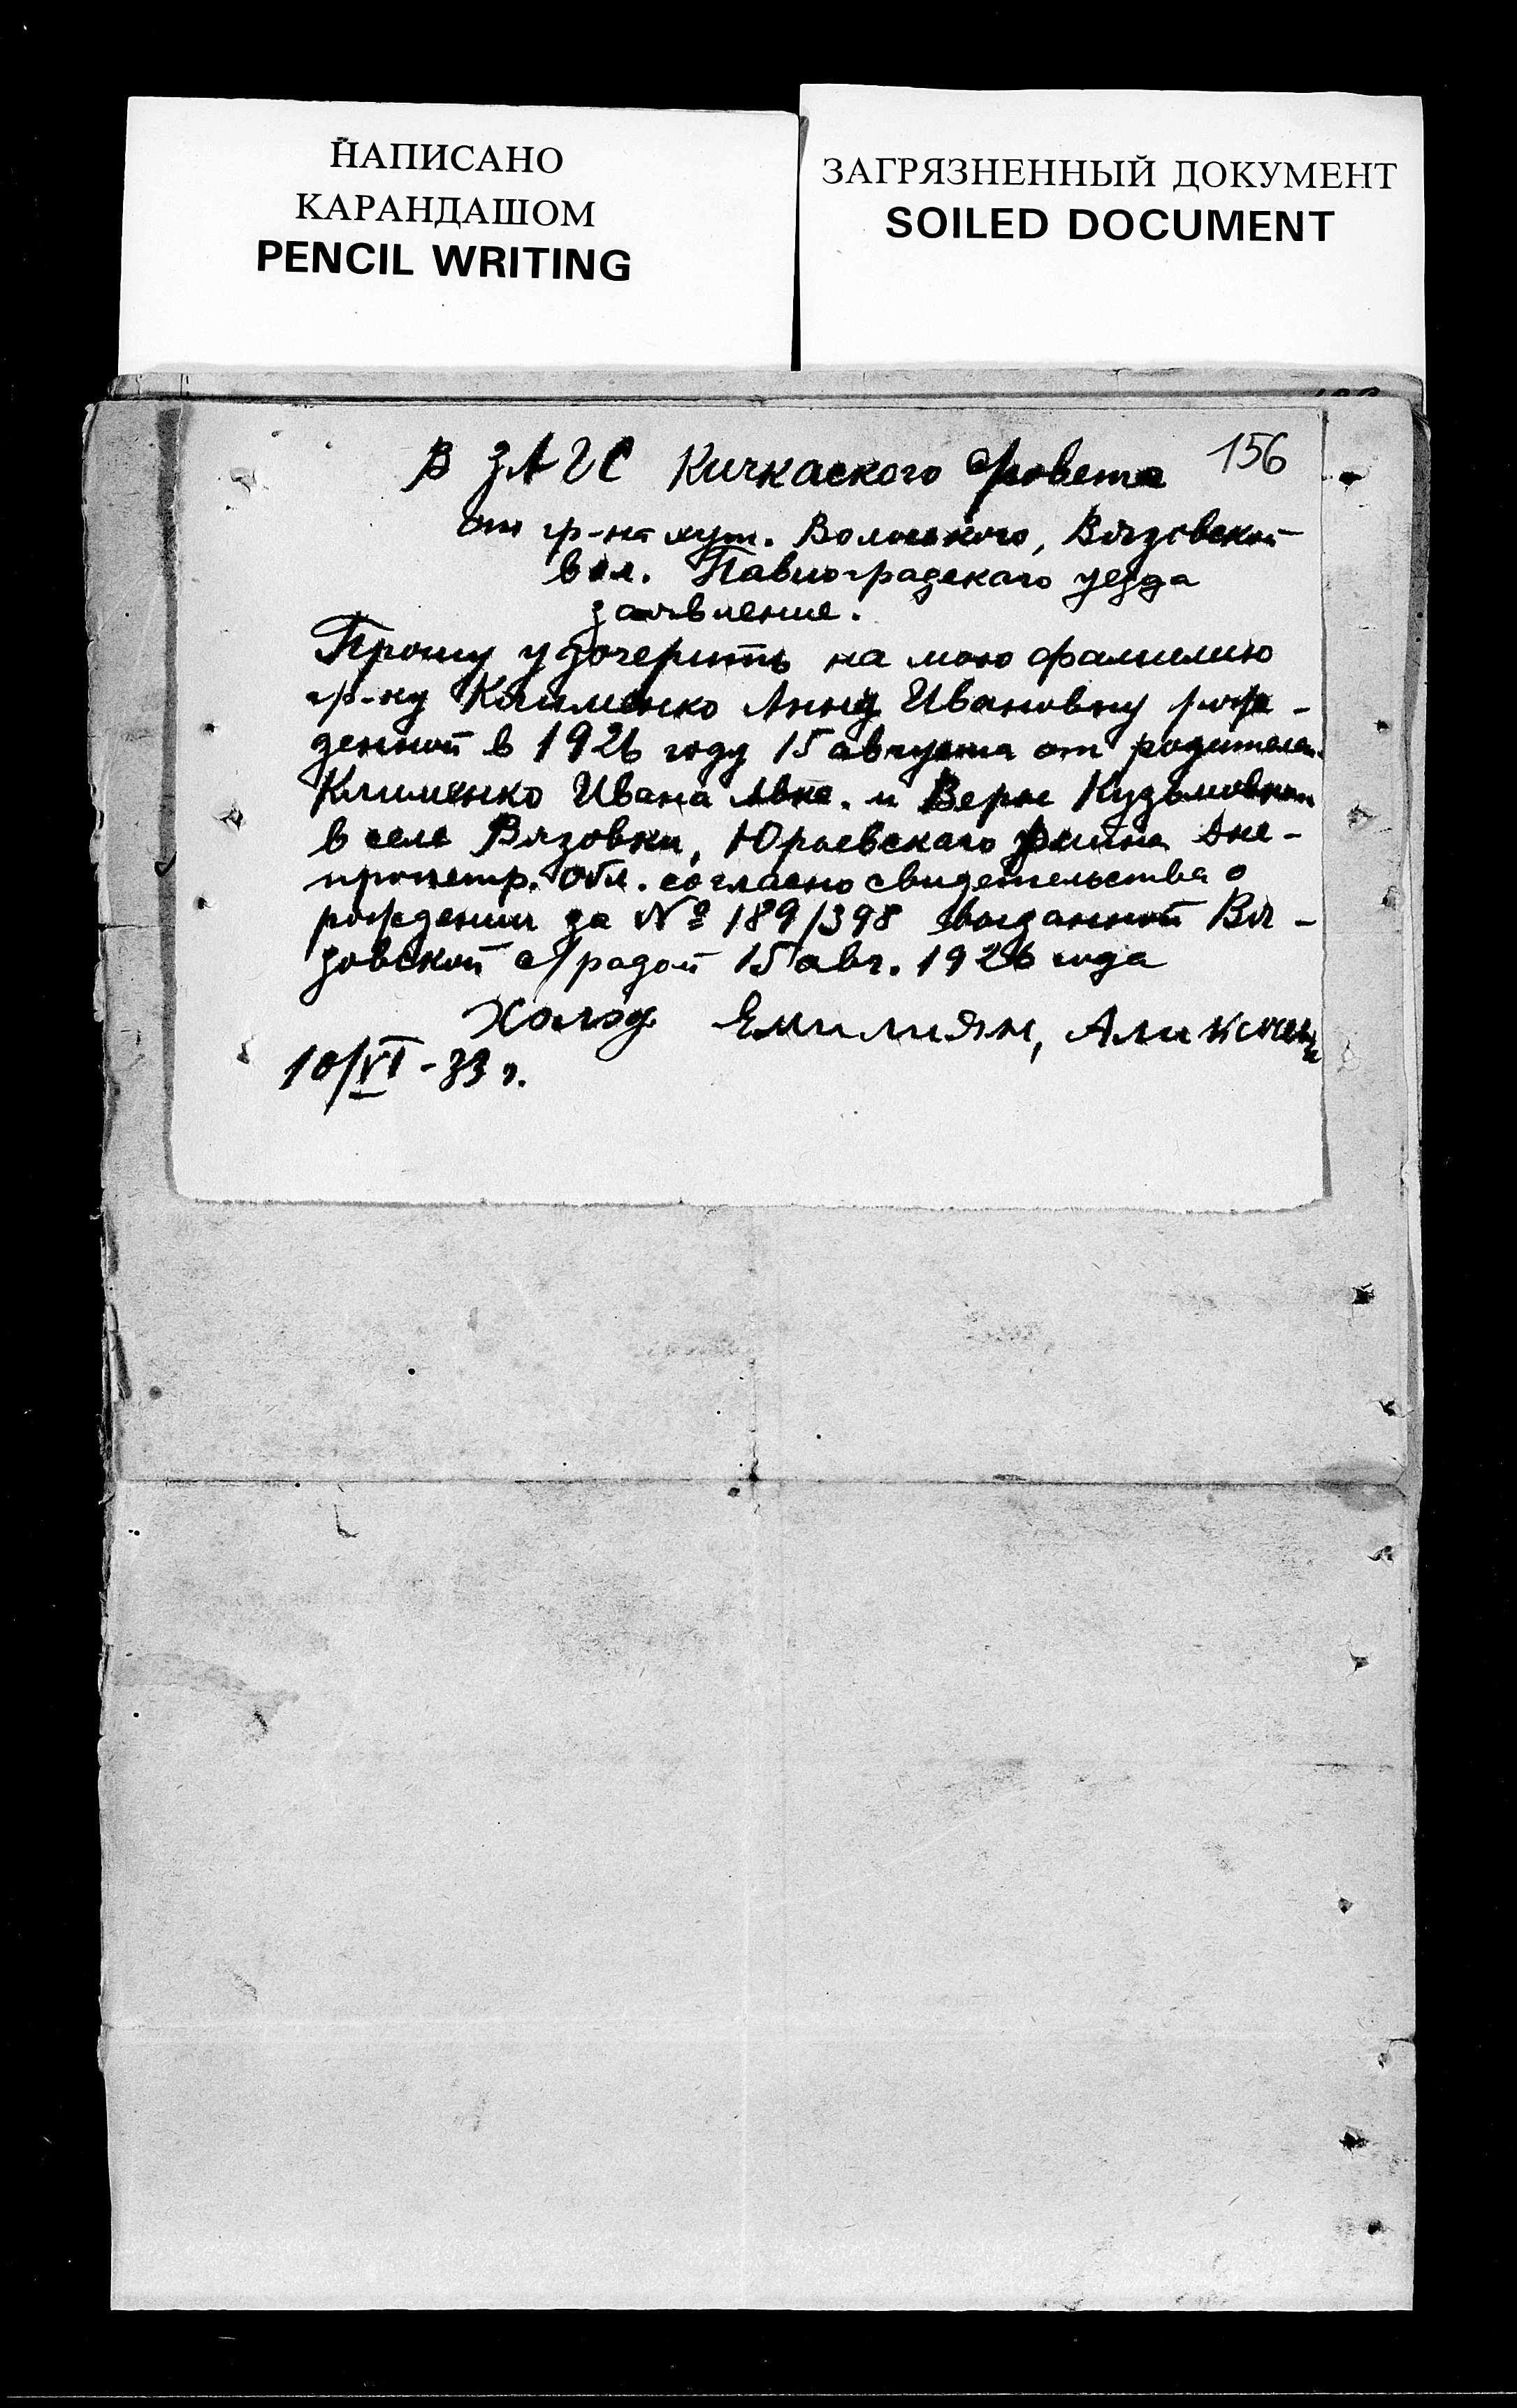 НАПИСАНО
КАРАНДАШОМ
PENCIL WRITING
ЗАГРЯЗНЕННЫЙ ДОКУМЕНТ
SOILED DOCUMENT
156
В ЗАГС Кичкаского
от гр-на хут. Волоского, Вязовской
вол. Павлоградскаго уезда
заявление.
Прошу удочерить на мою фамилию
гр-ку Клименко Анну Ивановну рож-
денной в 1926 году 15 августа от родителей
Клименко Ивана и Веры Кузьмовны
в селе Вязовки, Юрьевскаго района Дне-
пропетр. Обл. согласно свидетельства о
рождении за № 189/398 выданной Вя-
зовской с/радой 15 авг. 1926 года
Холод Емилиян,
10/VI-33 г.